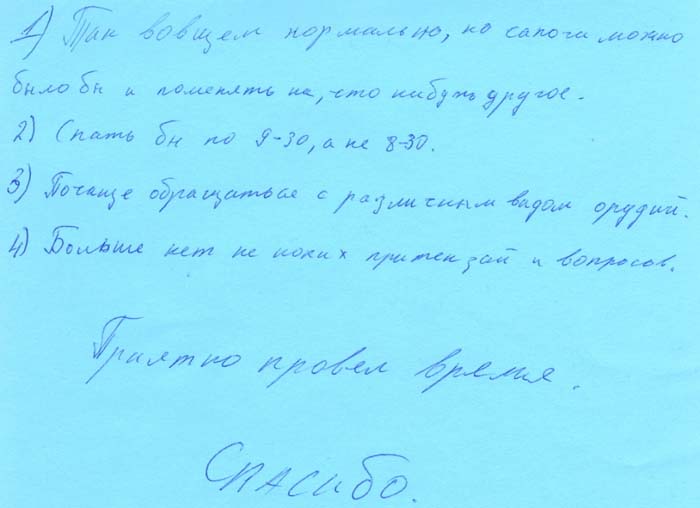 1) Так вобщем нормально, но сапоги можно
было бы и поменять на, что нибудь другое.
2) Спать бы по 9-30, а не 8-30.
3) Почаще обращаться с различным видом орудий.
4) Больше нет не каких притензай и вопросов.
Приятно провел время.
Спасибо.